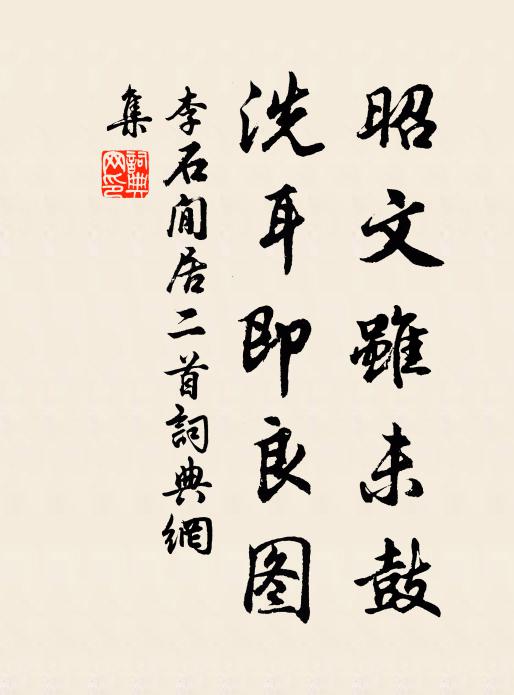 昭文雖未鼓
洗耳即良图
李石閒居二首詞典網
集
詞典網印